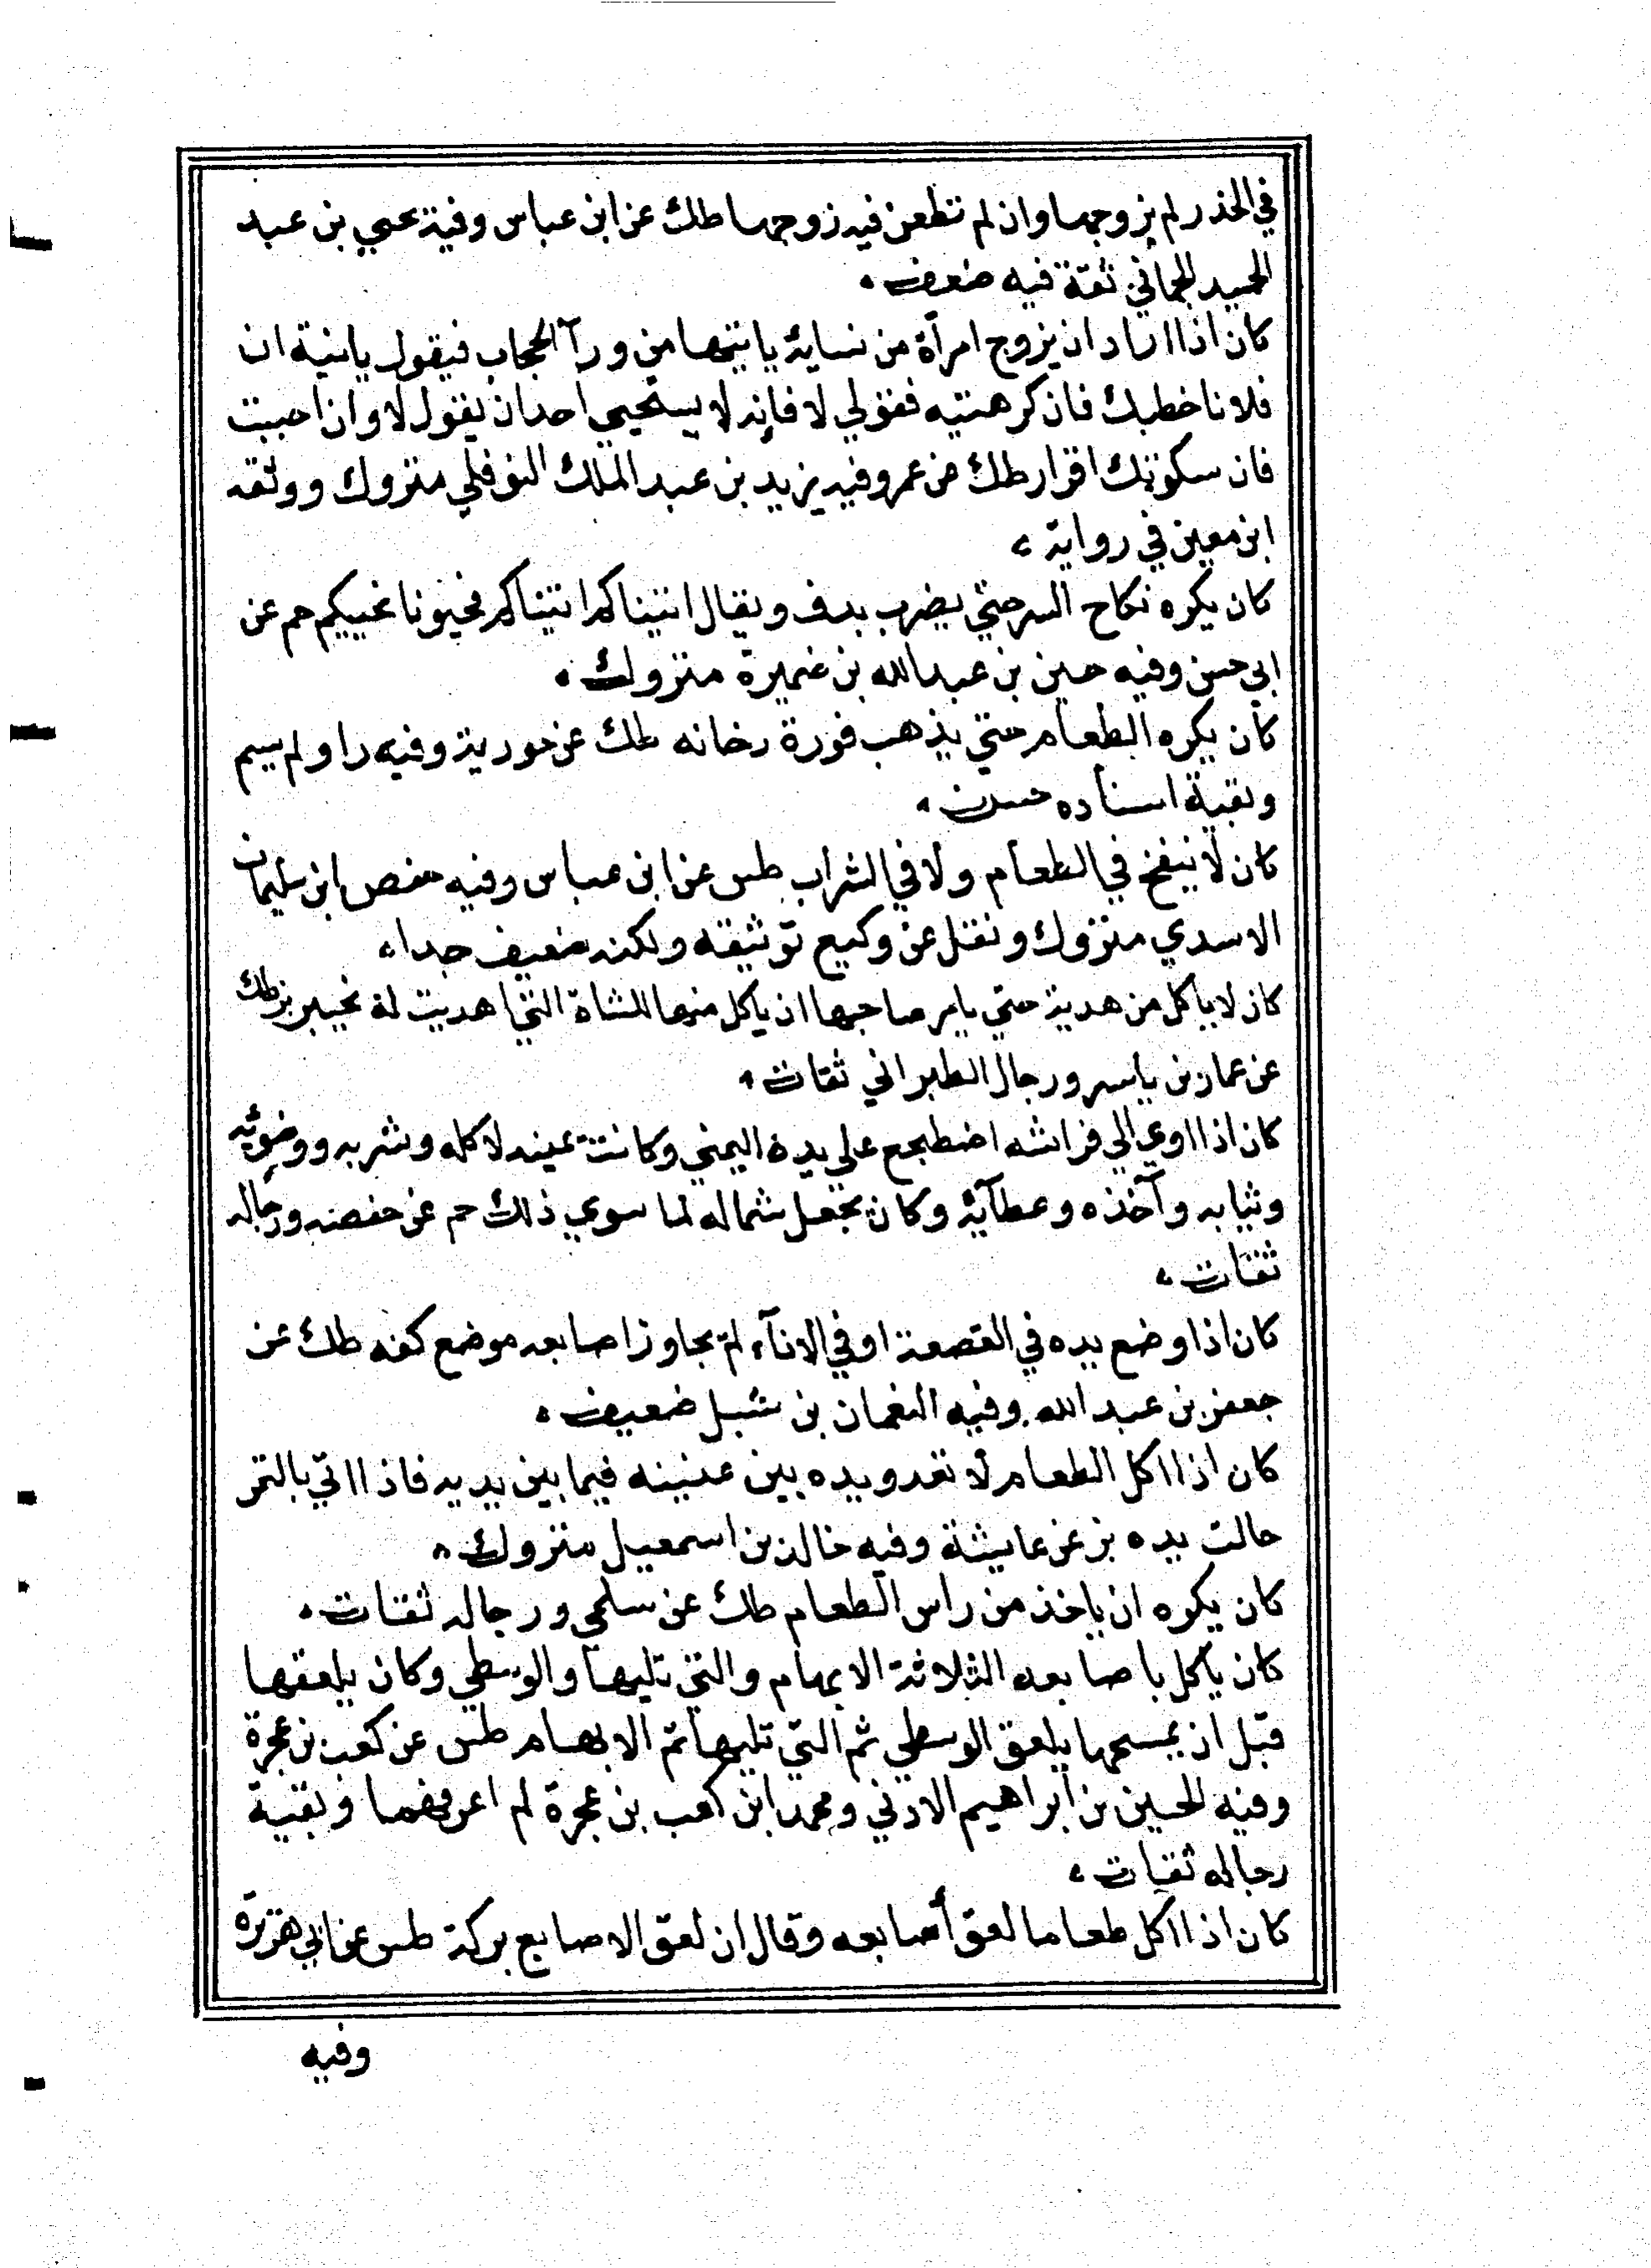 في الخذر لم يزوجها وان لم تطعن فيه زوجها طك عن ابن عباس وفية يحيي بن عبد
الحميد الحماني ثقة فيه ضعف
كان اذا اراد ان يزوج امرأة من نسايه ياتيها من ورآ الحجاب فيقول يابنية ان
فلانا خطبك فان كرهتيه فقولي لا فانه لا يستحيي احد ان يقول لا وان احببت
فان سكوتك اقرار طك عن عمر وفيه يزيد بن عبد الملك النوفلي متروك ووثقه
ابن معين في رواية
كان يكره نكاح السر حتي يضرب بدف ويقال اتيناكم اتيناكم فحيونا نحييكم حم عن
ابي حسن وفيه حسين بن عبد الله بن ضميرة متروك
كان يكره الطعام حتي يذهب فورة دخانه طك عن جورية وفيه راو لم يسم
وبقية اسناده حسن
كان لا ينفخ في الطعام ولا في الشراب طس عن ابن عباس وفيه حفص ابن سليمان
الاسدي متروك ونقل عن وكيع توثيقه ولكنه ضعيف جدا
كان لا ياكل من هدية حتي يامر صاحبها ان ياكل منها للشاة التي اهديت له بخيبر بز طك
عن عمار بن ياسر ورجال الطبراني ثقات
كان اذا اوي الي فراشه اضطجع علي يده اليمني وكانت يمينه لاكله وشربه ووضوئه
وثيابه وآخذه وعطآئه وكان يجعل شماله لما سوي ذلك حم عن حفصه ورجاله
ثقات
كان اذا وضع يده في القصعة او في الانآء لم يجاوز اصابعه موضع كفه طك عن
جعفر بن عبد الله وفيه النعمان بن شبل ضعيف
كان اذا اكل الطعام لا تعدو يده بين عينيه فيما بين يديه فاذا اتي بالتمر
جالت يده بز عن عايشة وفيه خالد بن اسمعيل متروك
كان يكره ان ياخذ من راس الطعام طك عن سلمي ورجاله ثقات
كان ياكل باصابعه الثلاثة الابهام والتي تليها والوسطي وكان يلعقها
قبل ان يمسحها يلعق الوسطي ثم التي تليها ثم الابهام طس عن كعب بن عجرة
وفيه الحسين بن ابراهيم الادني ومحمد ابن كعب بن عجرة لم اعرفهما وبقية
رجاله ثقات
كان اذا اكل طعاما لعق أصابعه وقال ان لعق الاصابع بركة طس عن ابي هريرة
وفيه